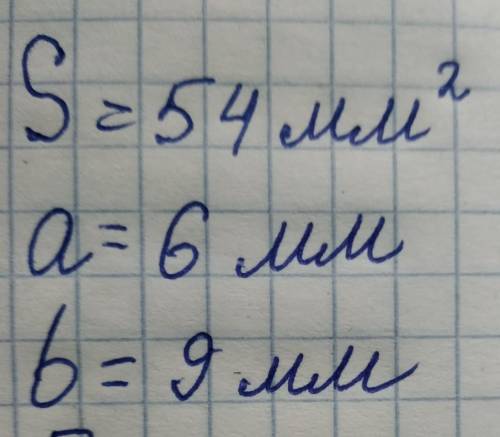 S = 54 мм²
a = 6 мм
b = 9 мм